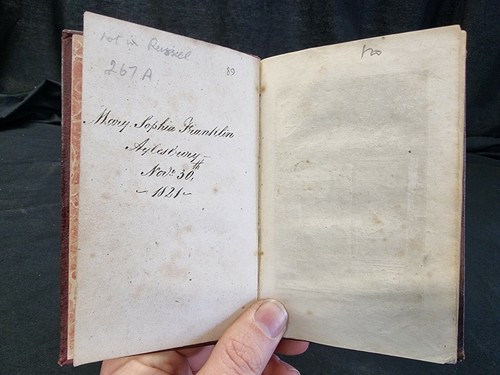 not in Russell
267 A
87
Mary Sophia Franklin
Aylesbury
Nov.r 30,th
~ 1821 ~